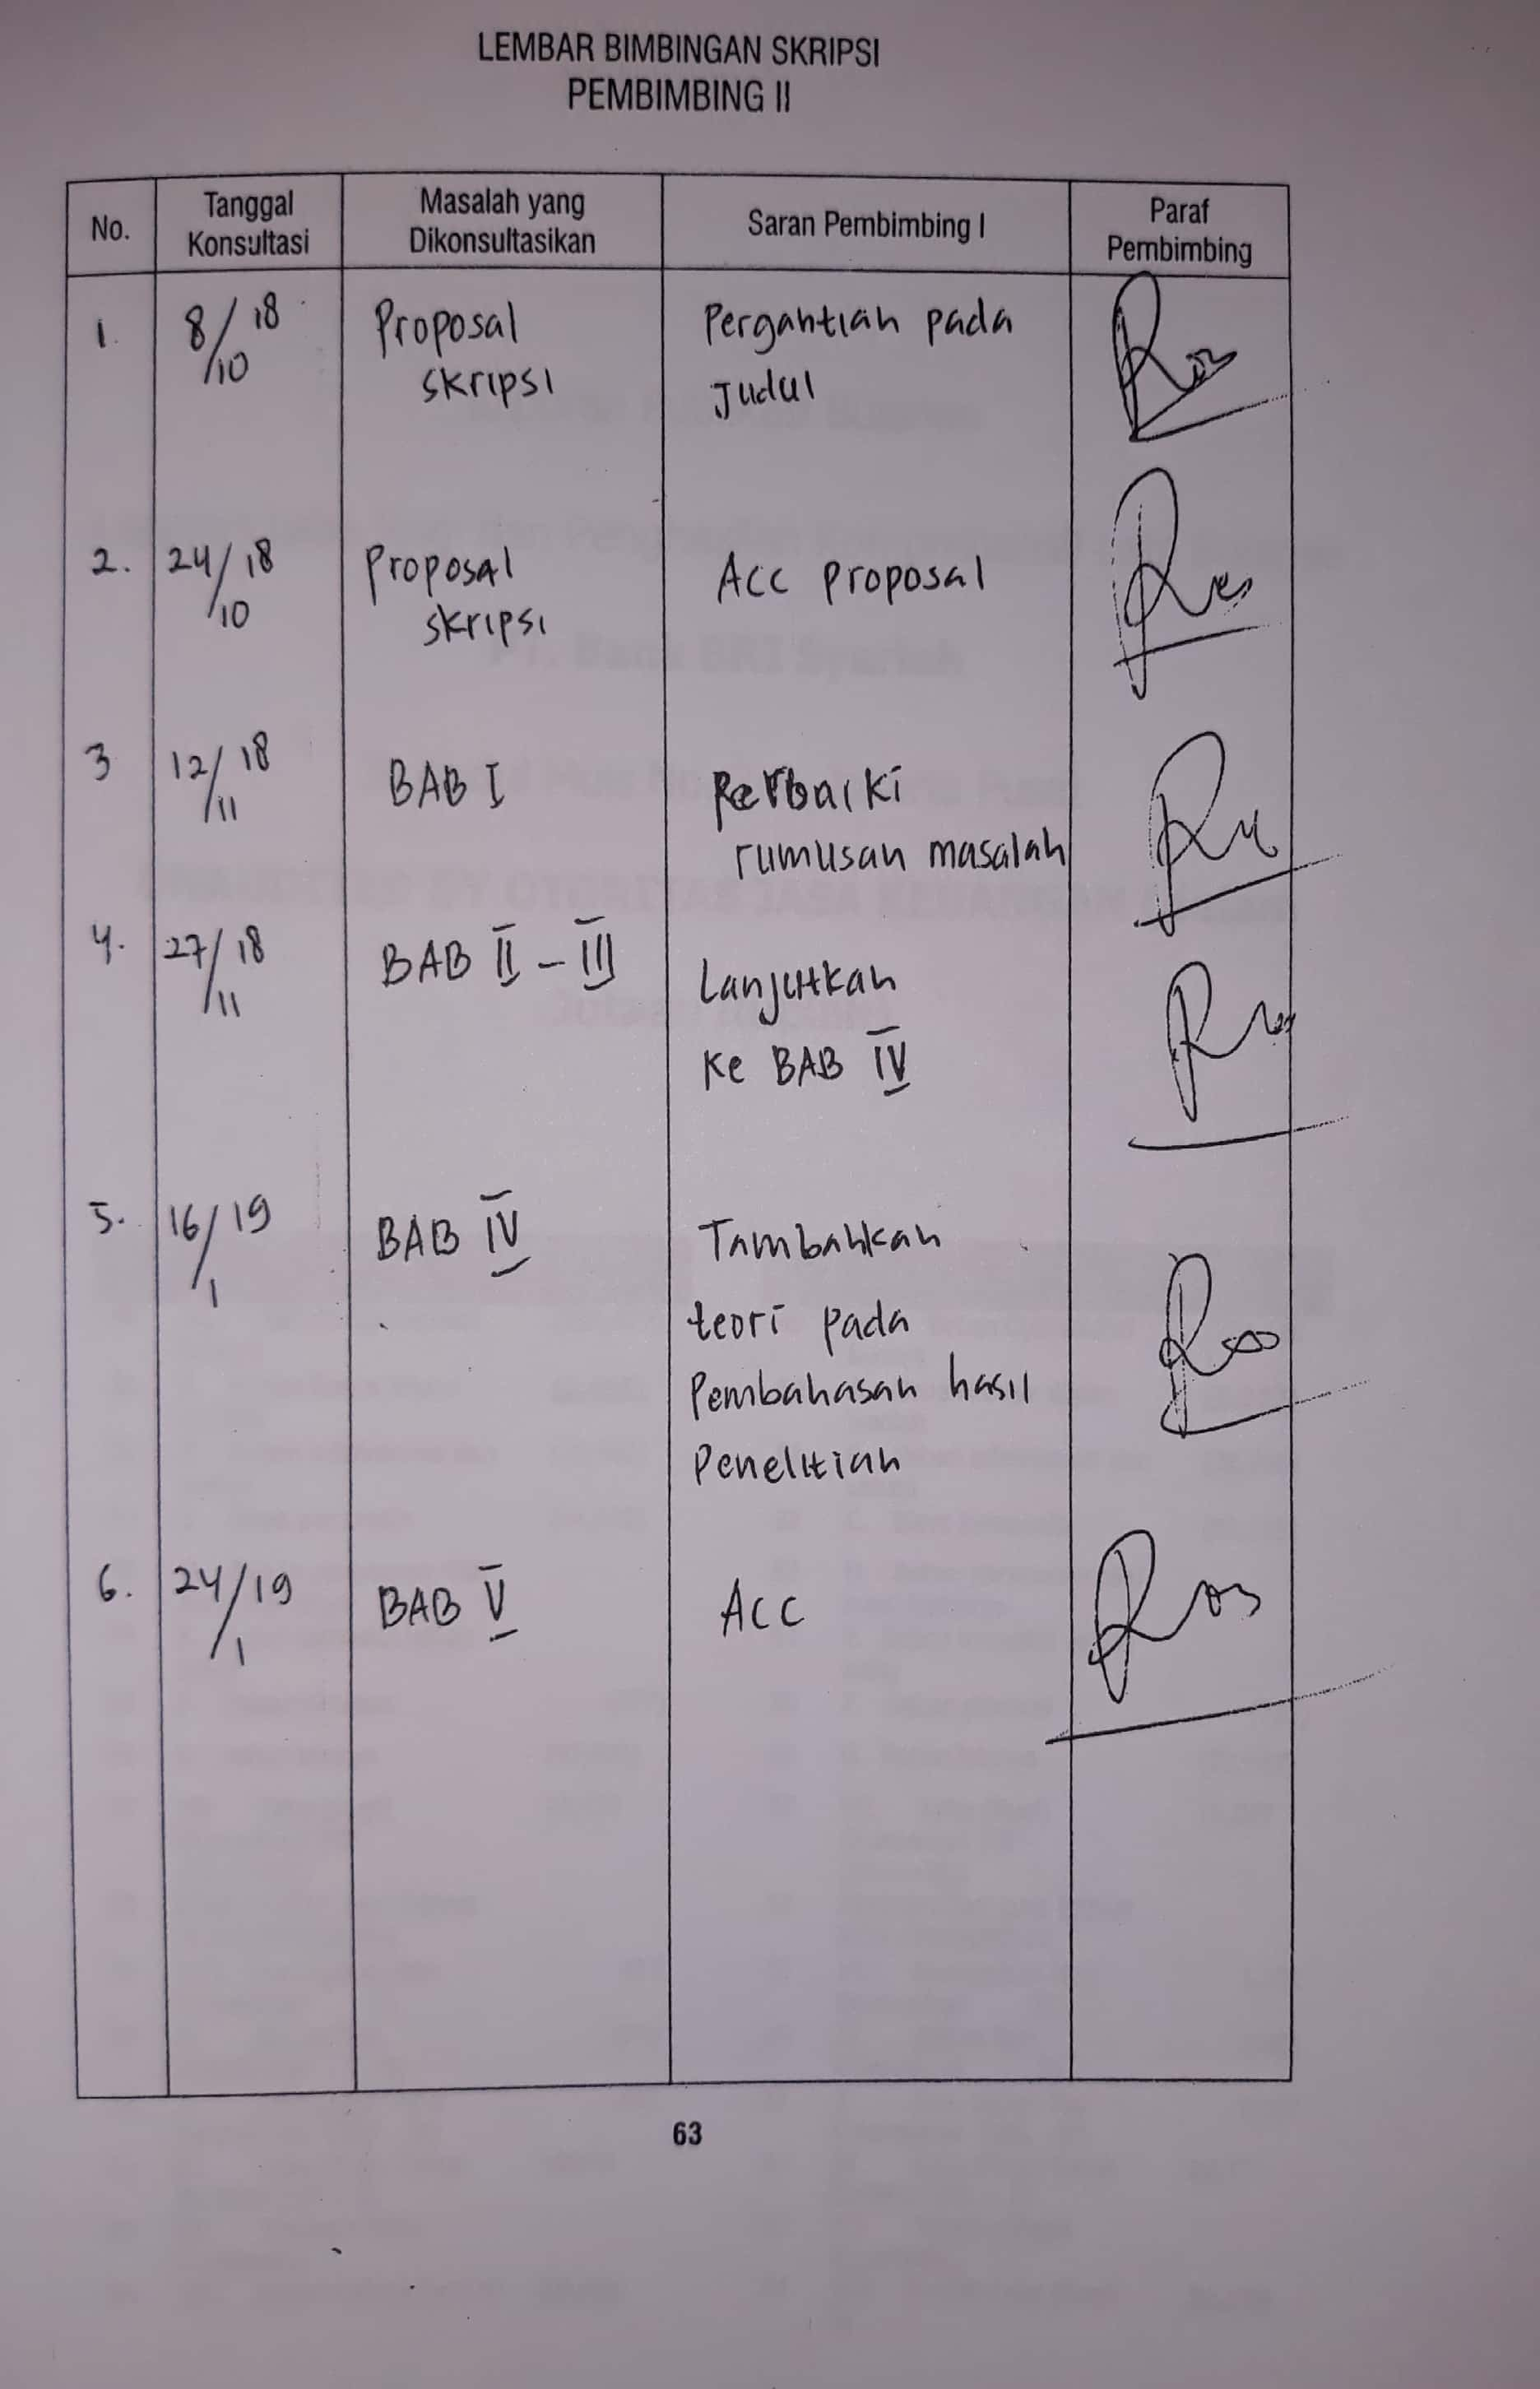 LEMBAR BIMBINGAN SKRIPSI
PEMBIMBING II
No. Tanggal Konsultasi Masalah yang Dikonsultasikan Saran Pembimbing I Paraf Pembimbing
1. 8/10 18 Proposal Pergantian pada
skripsi Judul
2. 24/10 18 Proposal Acc proposal
skripsi
3 12/11 18 BAB I Perbaiki
rumusan masalah
4. 27/11 18 BAB II - III Lanjutkan
ke BAB IV
5. 16/1 19 BAB IV Tambahkan
teori pada
Pembahasan hasil
Penelitian
6. 24/1 19 BAB V Acc
63
PT. Bank BRI Syariah